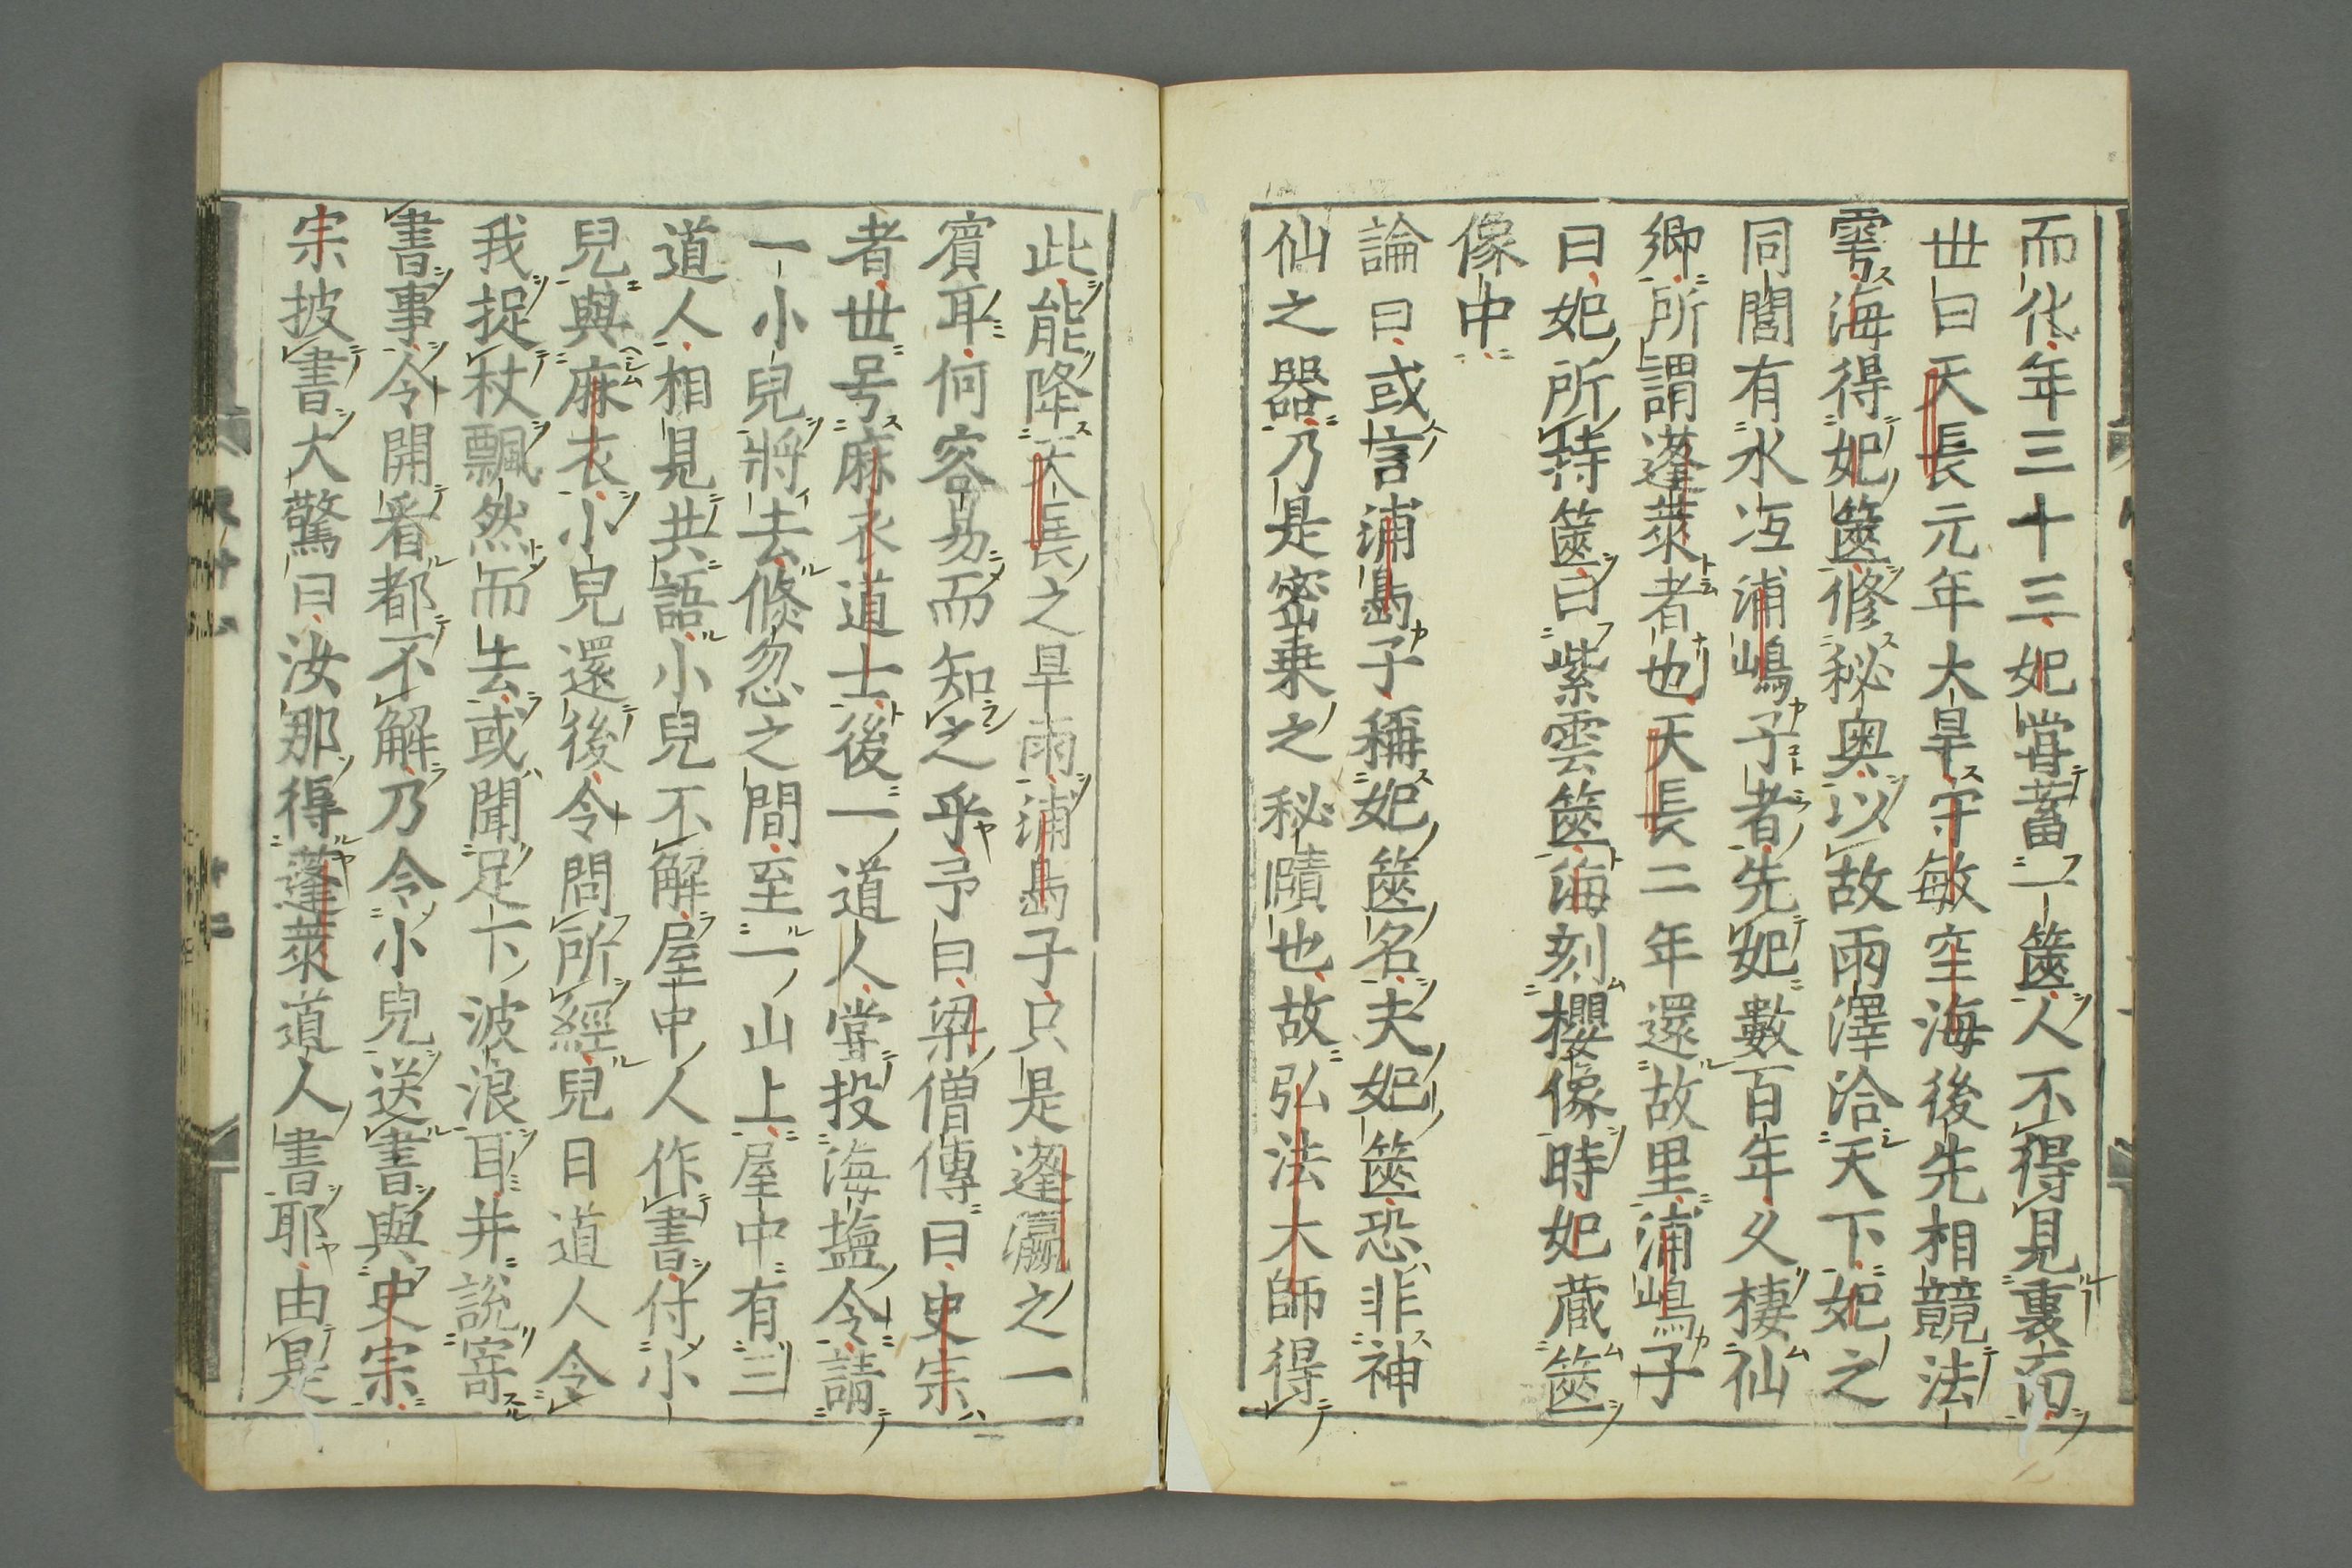 而化年三十三妃甞蓄一篋人不得見裏面
世曰天長元年大旱守敏空海後先相競法
雩海得妃篋修秘奥以故雨澤洽天下妃之
同閭有水江浦嶋子者先妃數百年久棲仙
郷所謂蓬萊者也天長二年還故里浦嶋子
曰妃所持篋曰紫雲篋海刻櫻像時妃蔵篋
像中
論曰或言浦島子稱妃篋名夫妃篋恐非神
仙之器乃是密乗之秘賾也故弘法大師得
此能降天長之旱雨浦島子只是蓬瀛之一
賓耳何容易而知之乎予曰梁僧傳曰史宗
者世号麻衣道士後一道人甞投海塩令請
一小兒將去倐忽之間至一山上屋中有三
道人相見共語小兒不解屋中人作書付小
兒與麻衣小兒還後令問所經兒曰道人令
我捉杖飄然而去或聞足下波浪耳并説寄
書事令開看都不解乃令小兒送書與史宗
宗披書大驚曰汝那得蓬萊道人書耶由是